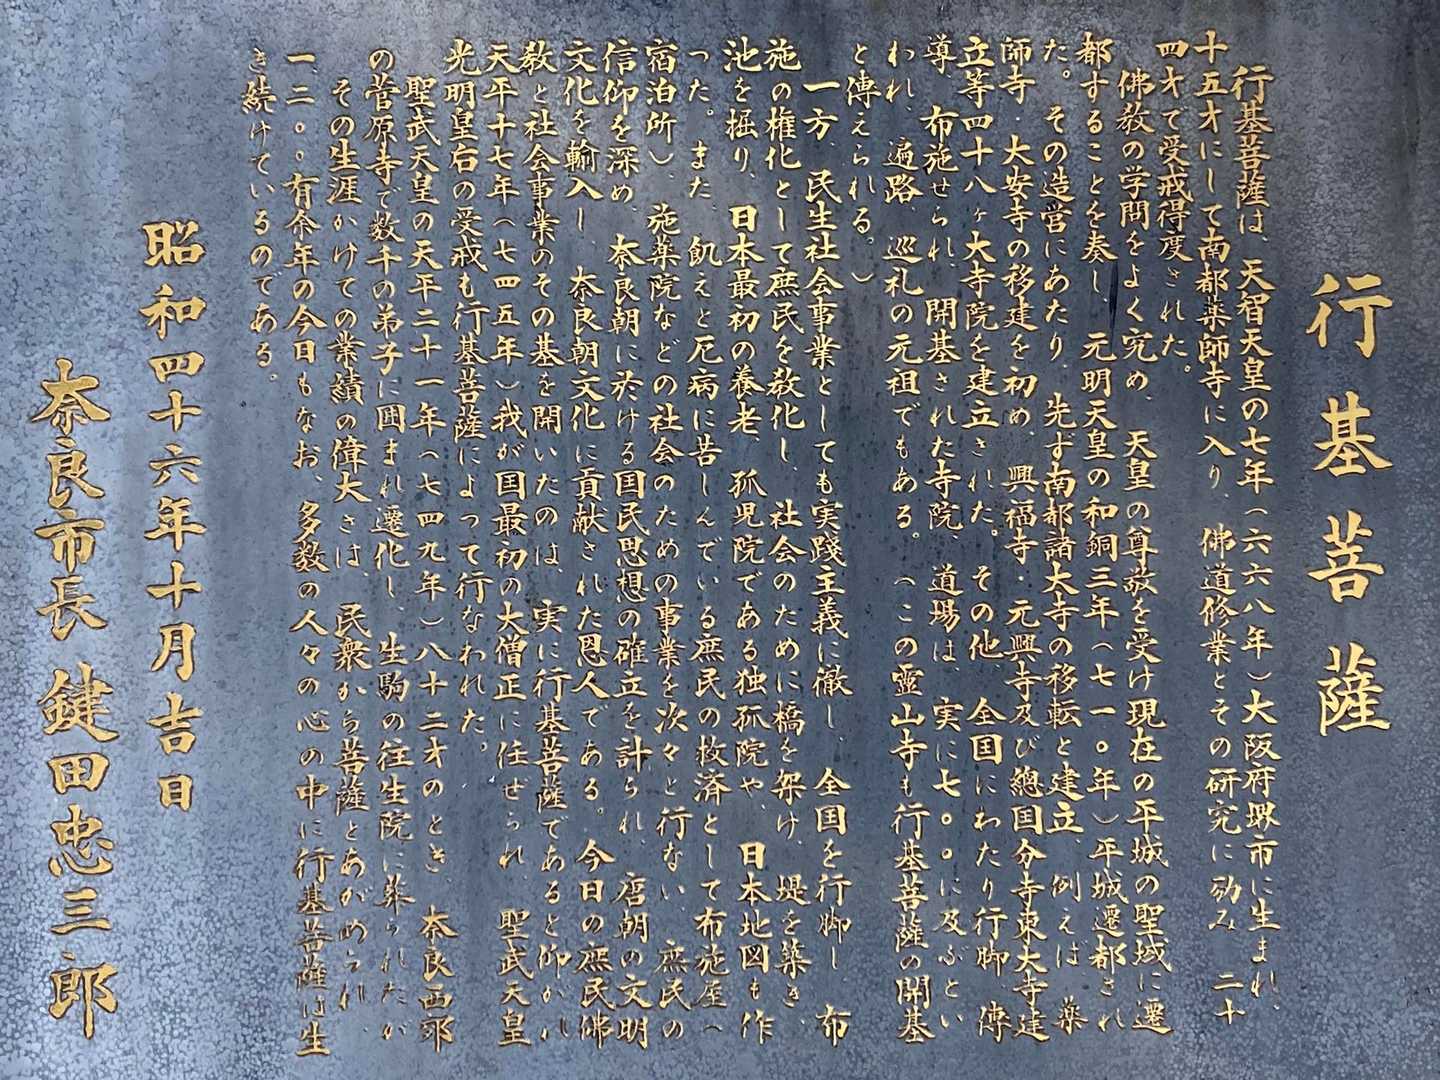 行基菩薩
行基菩薩は、天智天皇の七年(六六八年)大阪府堺市に生まれ、
十五才にして南都薬師寺に入り、佛道修業とその研究に励み 二十
四才で受戒得度された。
佛教の学問をよく究め、天皇の尊敬を受け現在の平城の聖域に遷
都することを奏し、元明天皇の和銅三年(七一〇年)平城遷都され
た。その造営にあたり、先ず南都諸大寺の移転と建立 例えば、薬
師寺・大安寺の移建を初め、興福寺・元興寺及び總国分寺東大寺建
立等四十八ヶ大寺院を建立された。その他、全国にわたり行脚、傳
導 布施せられ、開基された寺院、道場は、実に七〇〇に及ぶとい
われ、遍路、巡礼の元祖でもある。(この霊山寺も行基菩薩の開基
と傳えられる。)
一方、民生社会事業としても実踐主義に徹し、全国を行脚し 布
施の権化として庶民を教化し、社会のために橋を架け、堤を築き、
池を掘り、日本最初の養老、孤児院である独孤院や、日本地図も作
った。また、飢えと厄病に苦しんでいる庶民の救済として布施屋(
宿泊所)、施薬院などの社会のための事業を次々と行ない、庶民の
信仰を深め、奈良朝に於ける国民思想の確立を計られ、唐朝の文明
文化を輸入し、奈良朝文化に貢献された恩人である。今日の庶民佛
教と社会事業のその基を開いたのは、実に行基菩薩であると仰がれ
天平十七年(七四五年)我が国最初の大僧正に任ぜられ、聖武天皇
光明皇后の受戒も行基菩薩によって行なわれた。
聖武天皇の天平二十一年(七四九年)八十二才のとき、奈良西郊
の菅原寺で数千の弟子に囲まれ遷化し、生駒の往生院に葬られたが
その生涯かけての業績の偉大さは、民衆から菩薩とあがめられ、
一、二〇〇有余年の今日もなお、多数の人々の心の中に行基菩薩は生
き続けているのである。
昭和四十六年十月吉日
奈良市長 鍵田忠三郎